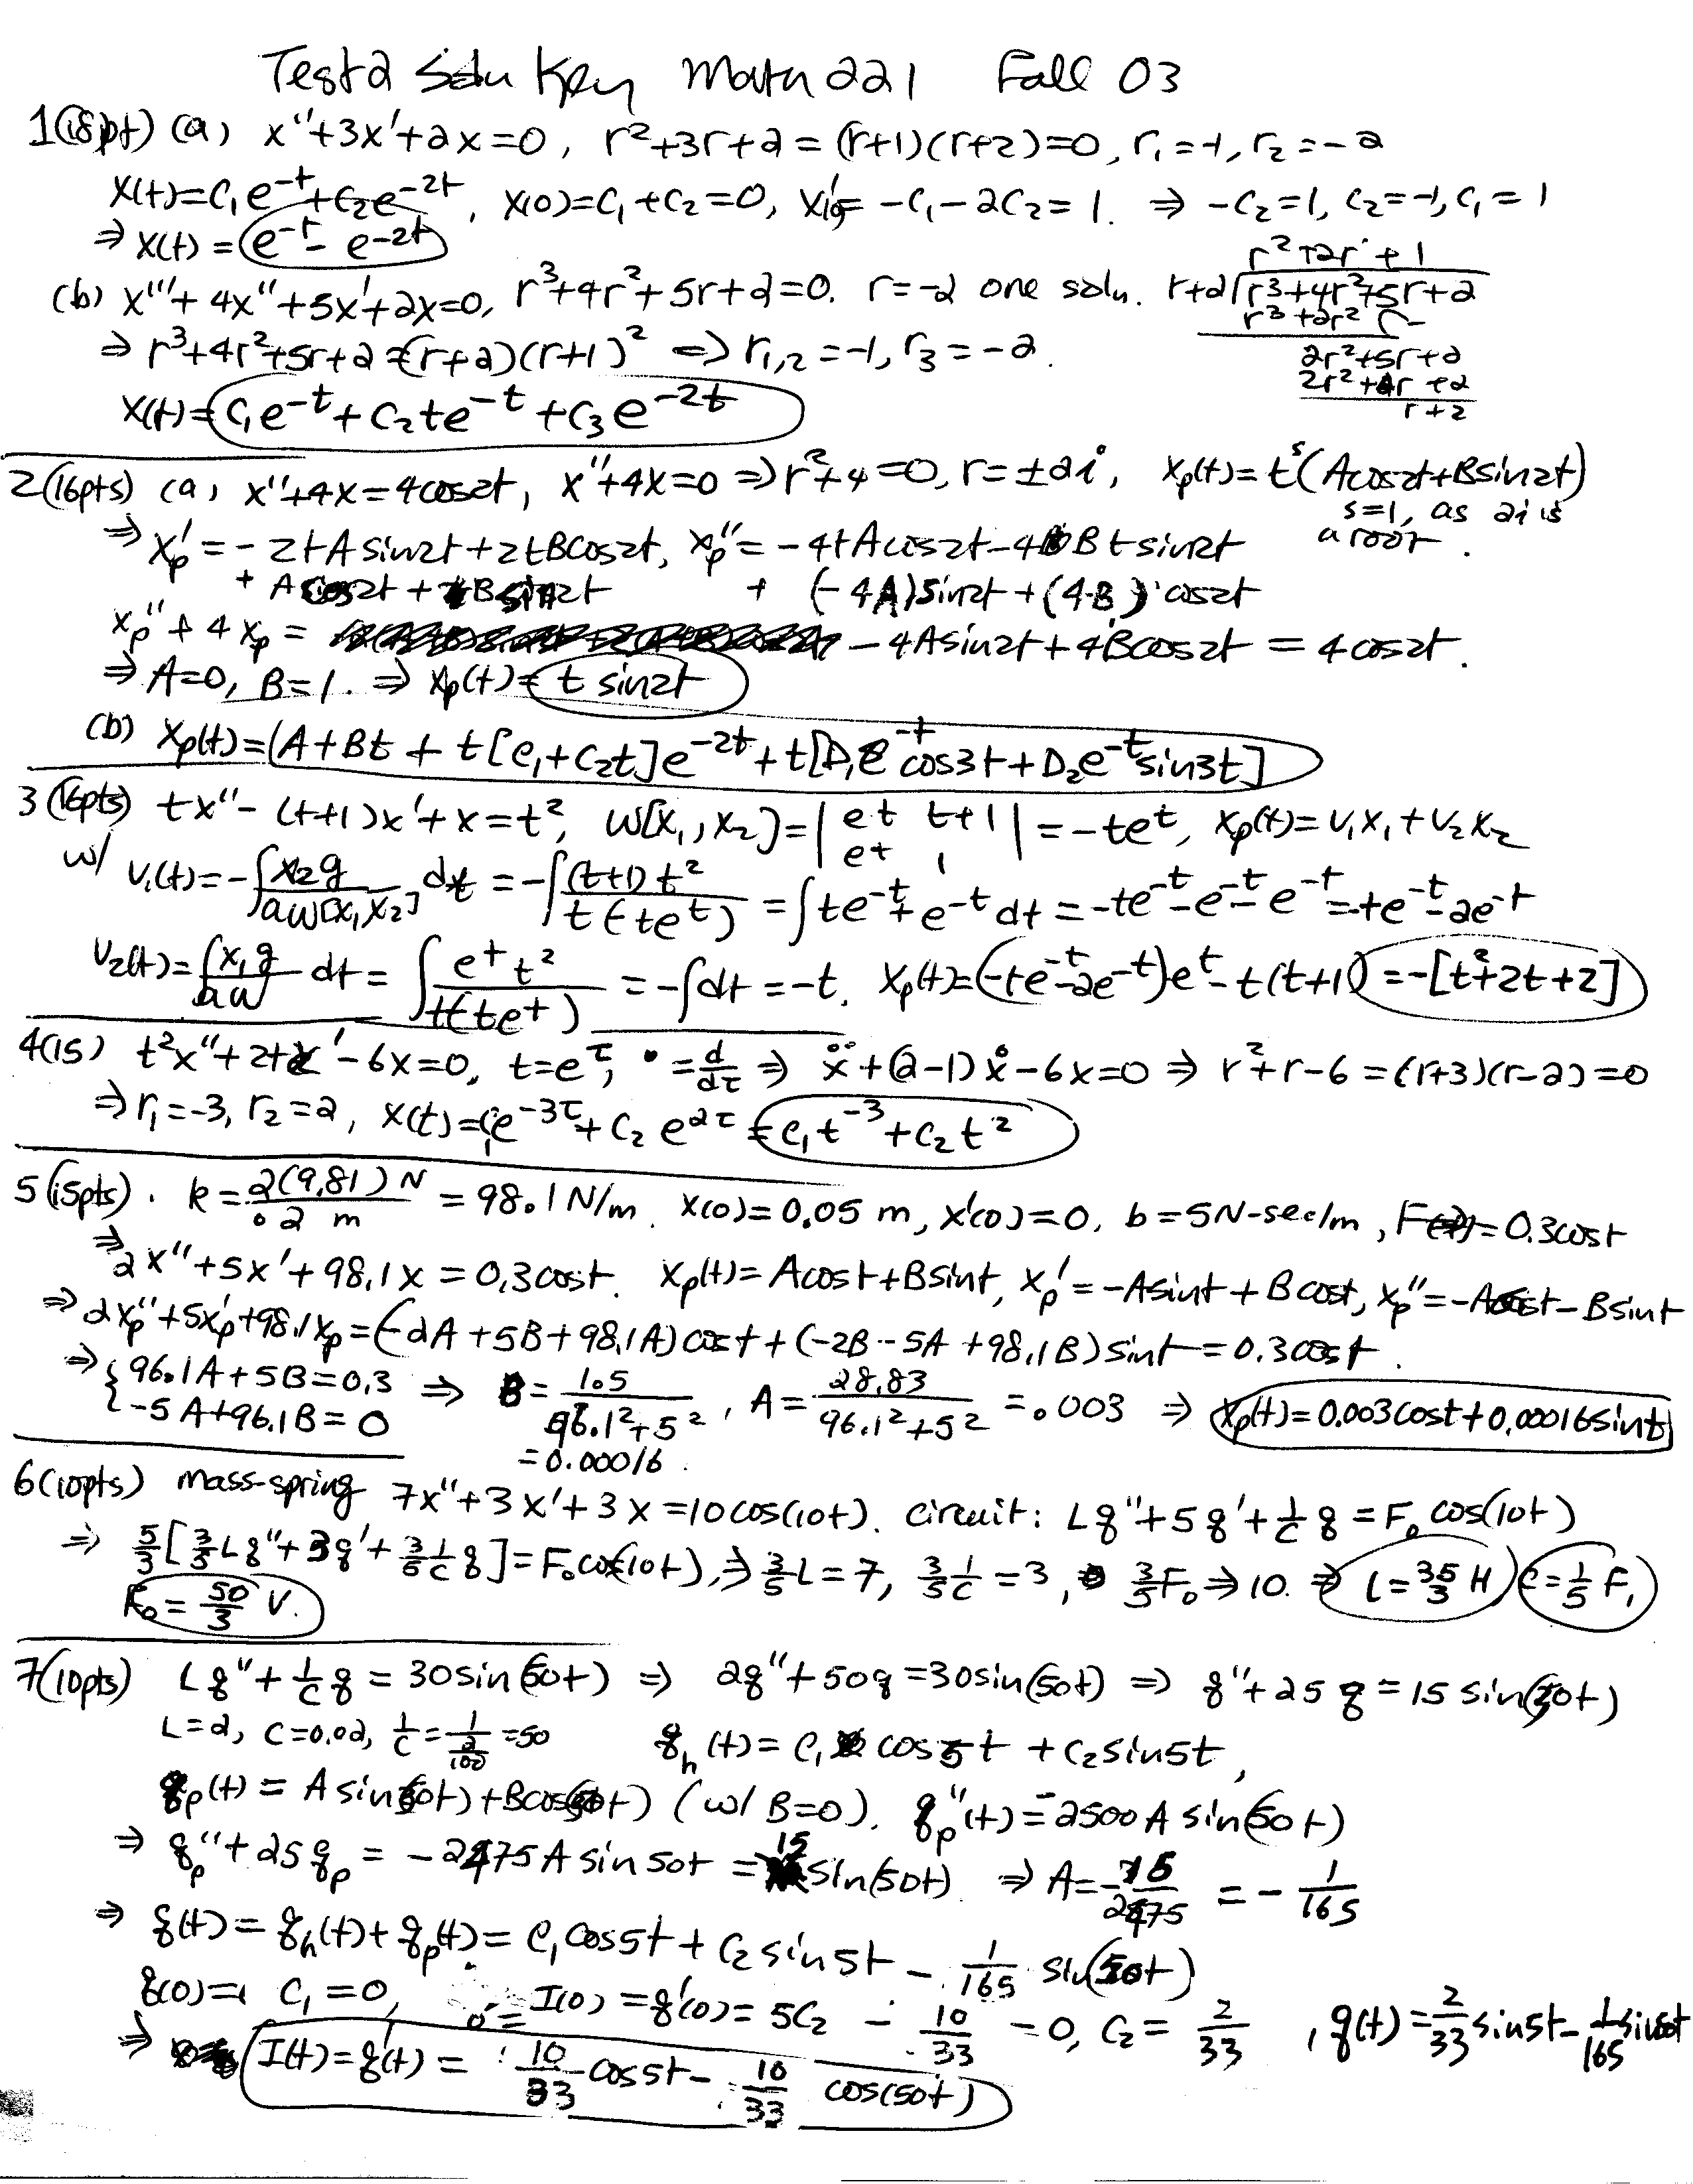 Test 2 Soln Key Math 221 Fall 03
1(18pt) (a) x''+3x'+2x=0, r²+3r+2=(r+1)(r+2)=0, r₁=-1, r₂=-2
x(t)=c₁e^{-t}+c₂e^{-2t}, x(0)=c₁+c₂=0, x'(0)=-c₁-2c₂=1. ⇒ -c₂=1, c₂=-1, c₁=1
⇒ x(t)=e^{-t}-e^{-2t}
(b) x'''+4x''+5x'+2x=0, r³+4r²+5r+2=0. r=-2 one soln.
r²+2r+1
r+2 r³+4r²+5r+2
r³+2r²
2r²+5r+2
2r²+4r+2
r+2
⇒ r³+4r²+5r+2=(r+2)(r+1)² ⇒ r₁,₂=-1, r₃=-2.
x(t)=c₁e^{-t}+c₂te^{-t}+c₃e^{-2t}
2(16pts) (a) x''+4x=4cos2t, x''+4x=0 ⇒ r²+4=0, r=±2i, x_p(t)=t^s(Acos2t+Bsin2t)
s=1, as 2i is a root.
⇒ x_p'=-2tAsin2t+2tBcos2t, x_p''=-4tAcos2t-4Btsin2t
+Acos2t+Bsin2t +(-4A)sin2t+(4B)cos2t
x_p''+4x_p= -4Asin2t+4Bcos2t=4cos2t.
⇒ A=0, B=1. ⇒ x_p(t)=t sin2t
(b) x_p(t)=(A+Bt+t[c₁+c₂t]e^{-2t}+t[D₁e^{-t}cos3t+D₂e^{-t}sin3t]
3(16pts) tx''-(t+1)x'+x=t², W[x₁,x₂]=|e^t t+1; e^t 1|=-te^t, x_p(t)=v₁x₁+v₂x₂
w/ v₁(t)=-∫x₂g/(aW[x₁,x₂])dt=-∫(t+1)t²/(t(-te^t))=∫te^{-t}+e^{-t}dt=-te^{-t}-e^{-t}-e^{-t}=-te^{-t}-2e^{-t}
v₂(t)=∫x₁g/(aW)dt=∫e^t t²/(t(-te^t))=-∫dt=-t. x_p(t)=(-te^{-t}-2e^{-t})e^t-t(t+1)=-[t²+2t+2]
4(15) t²x''+2tx'-6x=0, t=e^τ, •=d/dτ ⇒ ẍ+(2-1)ẋ-6x=0 ⇒ r²+r-6=(r+3)(r-2)=0
⇒ r₁=-3, r₂=2, x(t)=c₁e^{-3τ}+c₂e^{2τ}=c₁t^{-3}+c₂t²
5(15pts). k=2(9.81)N/.2 m=98.1N/m. x(0)=0.05 m, x'(0)=0, b=5N-sec/m, F(t)=0.3cost
⇒ 2x''+5x'+98.1x=0.3cost. x_p(t)=Acost+Bsint, x_p'=-Asint+Bcost, x_p''=-Acost-Bsint
⇒ 2x_p''+5x_p'+98.1x_p=(-2A+5B+98.1A)cost+(-2B-5A+98.1B)sint=0.3cost.
⇒ {96.1A+5B=0.3
-5A+96.1B=0 ⇒ B=1.5/(96.1²+5²), A=28.83/(96.1²+5²)=.003 ⇒ x_p(t)=0.003cost+0.00016sint
=0.00016.
6(10pts) mass-spring 7x''+3x'+3x=10cos(10t). circuit: Lq''+5q'+1/C q=F₀cos(10t)
⇒ 5/3[3/5Lq''+3q'+3/5 1/C q]=F₀cos(10t), ⇒ 3/5L=7, 3/5 1/C=3, 3/5F₀⇒10. ⇒ L=35/3 H, C=1/5 F,
F₀=50/3 V.
7(10pts) Lq''+1/C q=30sin(50t) ⇒ 2q''+50q=30sin(50t) ⇒ q''+25q=15sin(50t)
L=2, C=0.02, 1/C=1/(2/100)=50 q_h(t)=c₁cos5t+c₂sin5t,
q_p(t)=Asin(50t)+Bcos(50t) (w/ B=0). q_p''(t)=-2500Asin(50t)
⇒ q_p''+25q_p=-2475Asin50t=15sin(50t). ⇒ A=-15/2475=-1/165
⇒ q(t)=q_h(t)+q_p(t)=c₁cos5t+c₂sin5t-1/165 sin(50t)
q(0)= c₁=0, 0=I(0)=q'(0)=5c₂-10/33=0, c₂=2/33, q(t)=2/33 sin5t-1/165 sin50t
⇒ I(t)=q'(t)=10/33 cos5t-10/33 cos(50t)